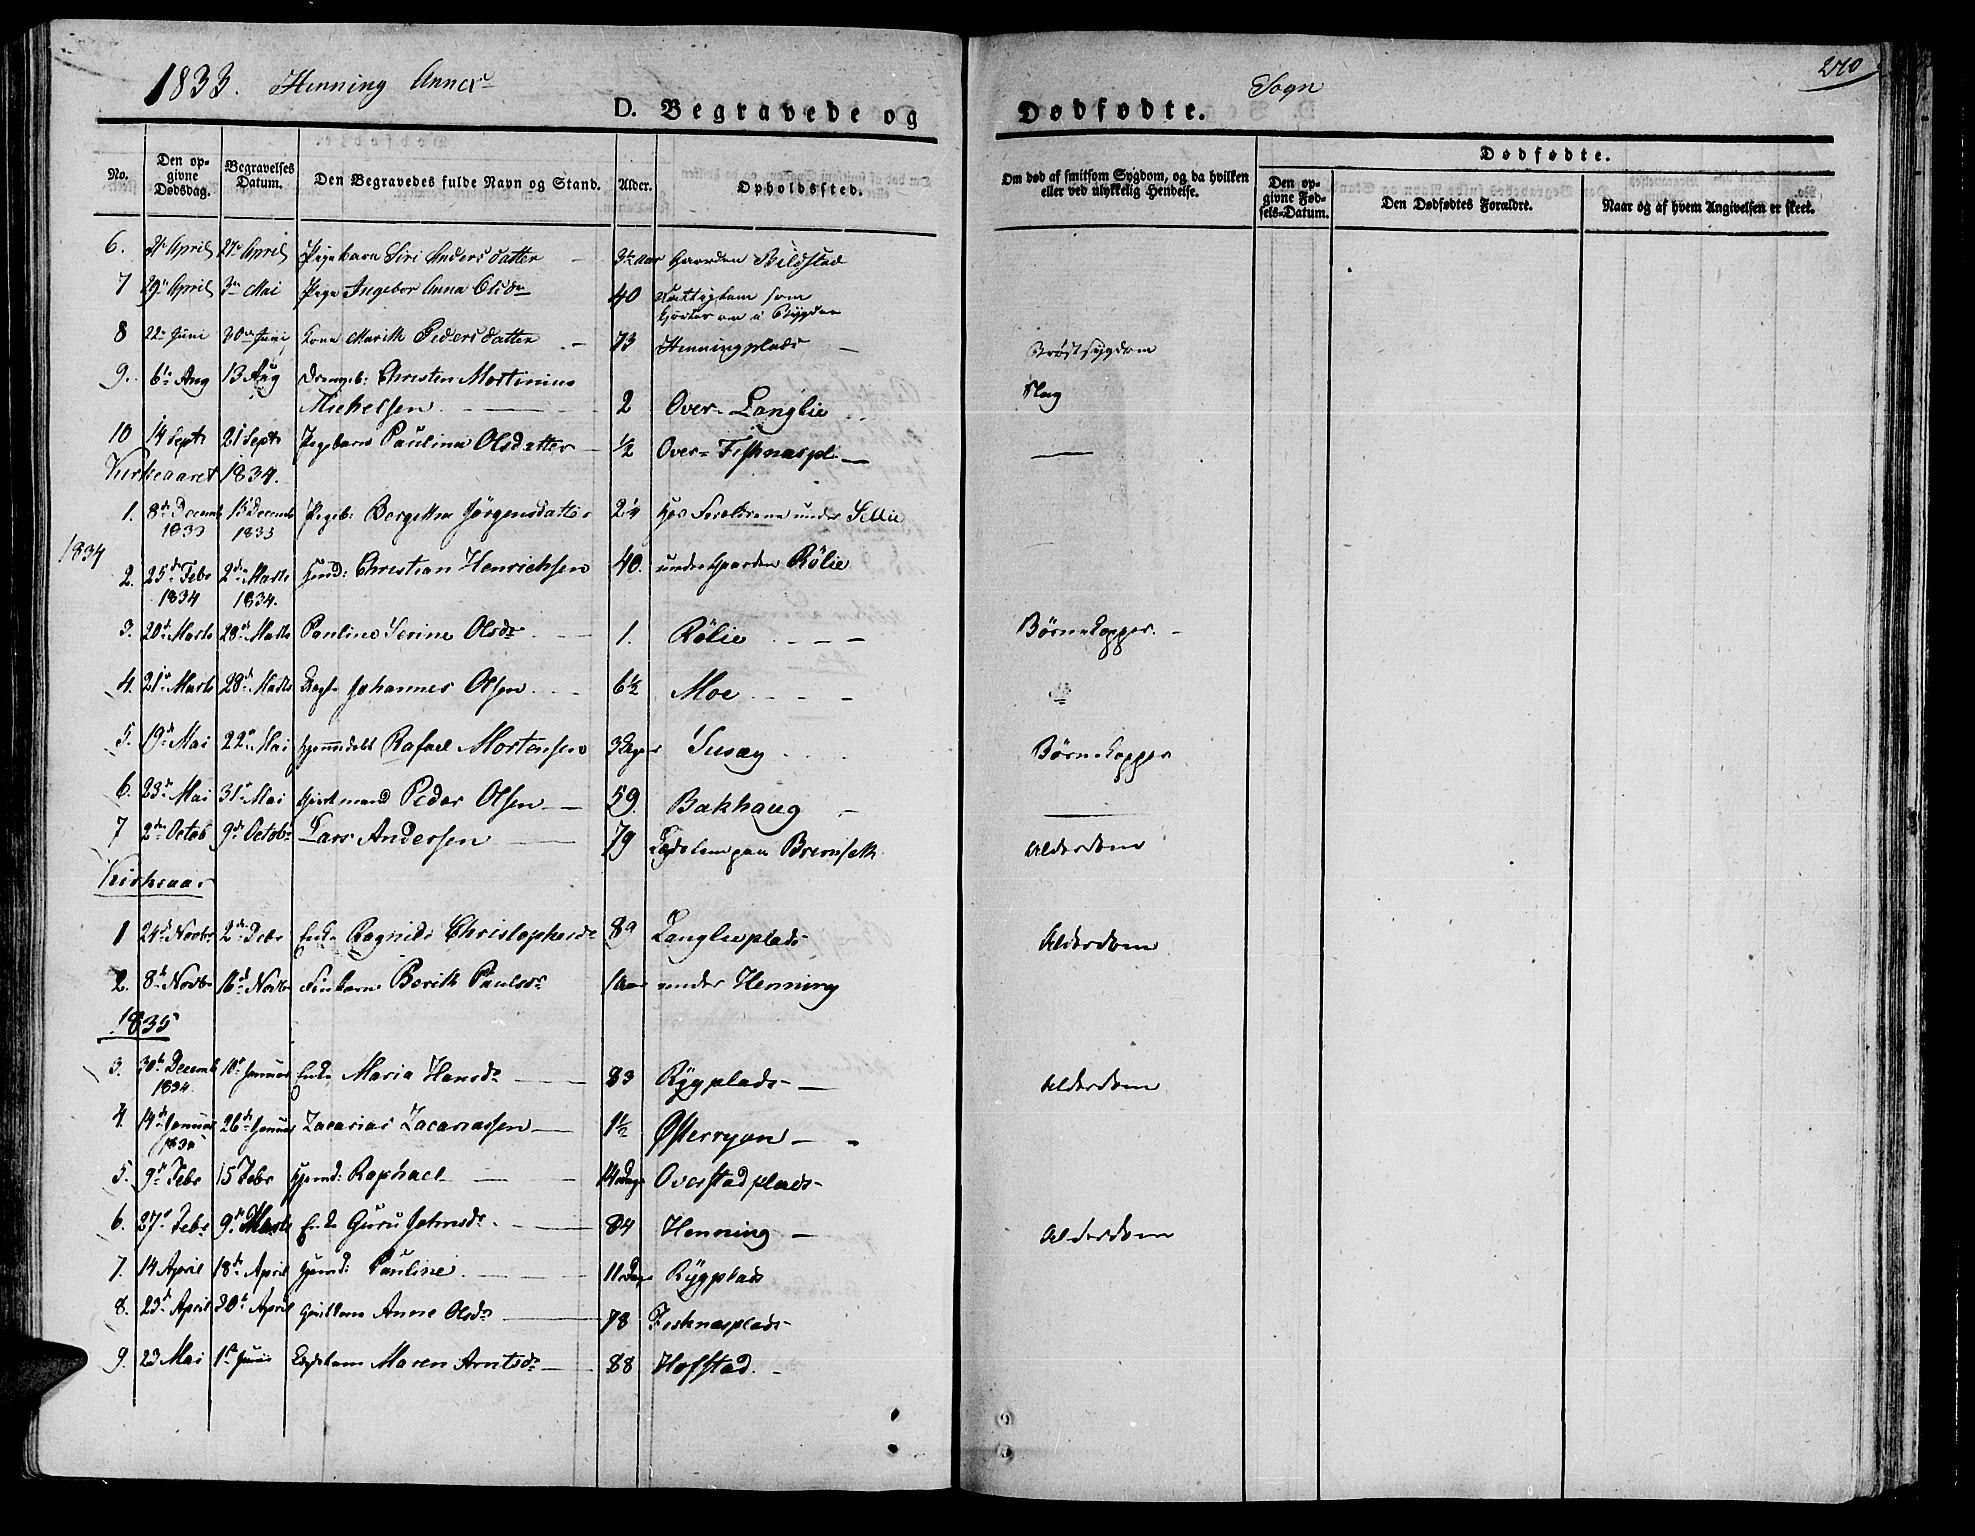 1833. Henning Annex Sogn 270
D. Begravede og Dødfødte.
No. Den opgivne Dødsdag. Begravelses Datum. Den Begravedes fulde Navn og Stand. Alder. Opholdssted. Om død af smitsom Sygdom, og da hvilken eller ved ulykkelig Hendelse. Dødfødte. Den opgivne Fødsels-Datum. Den Dødfødtes Forældre. Naar og af hvem Angivelsen er skeet.
6. April 27 April Pigebarn Siri Andersdatter 3½ Aar Gaarden Bildstad
7 29 April 3 Mai Pige Ingebor Anna Olsdr 40 som
i Bygden
8 22 Juni 30 Juni Kone Marith Pedersdatter 73 Henningplads Brøstsygdom
9. 6te Aug 13 Aug Drengeb: Christen Mortinius
Michelsen 2 Over-Langlie Slag
10 14 Septr 21 Septr Pigebarn Paulina Olsdatter ½ Over-Fisknaspl.
Kirkeaaret 1834.
1. 8de Decemb 15 Decemb Pigeb: Jörgensdatter 2¼ hos Foreldrene under Sellie
1833 1833
1834
2. 25de Febr 2den Marts Huusmd: Christian Henrichsen 40. under Gaarden Rølie
1834 1834.
3. 20de Marts 28de Marts Pauline Serine Olsdr 1. Rølie Børnekopper.
4. 21 Marts 28de Marts Johannes Olsen 6½ Moe
5. 19de Mai 22 Mai hjemmedøbt Rafael Mortensen 3 Dager Susæg Børnekopper
6. 23de Mai 31te Mai Giftmand Peder Olsen 59. Bakhaug
7 2den Octob 9de Octobr Lars Andersen 79 Lægdslem paa Bremseth Alderdom
Kirkeaar
1 24de Novbr 2den Debr Enke Ragnild Christophersdr 89 Langlieplads Alderdom
2. 8de Novbr 16de Novbr Berith Paulsdr 1 Aar under Henning
1835
3. 30te Decemb 10 Januar Enke Maria Hansdr 83 Rygplads Alderdom
1834.
4. 14de Januar 26de Januar Zacarias Zacariassen 1½
1835
5. 9de Febr 15 Febr hjemd: Raphael 14 Dage Overstadplads
6. 27 Febr 9de Marts Enke Guru Johnsdr 84 Henning Alderdom
7. 14 April 18de April hjemd: Pauline 11 Dage Rygplads
8. 23de April 30te April Anne Olsdr 78 Fisknasplads
9. 23 Mai 1ste Junii Lægdslem Maren Arntsdr 88 Hofstad.